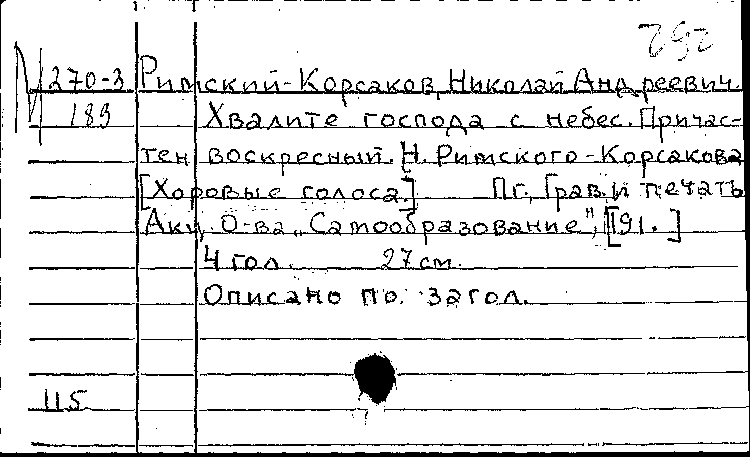 292
М 270-3 Римский-Корсаков, Николай Андреевич.
183 Хвалите господа с небес. Причас-
тен воскресный. Н. Римского-Корсакова
[Хоровые голоса.] Пг., Грав. и печать
Акц. О-ва "Самообразование", [191. ]
4 гол. 27 см.
Описано по загол.
115